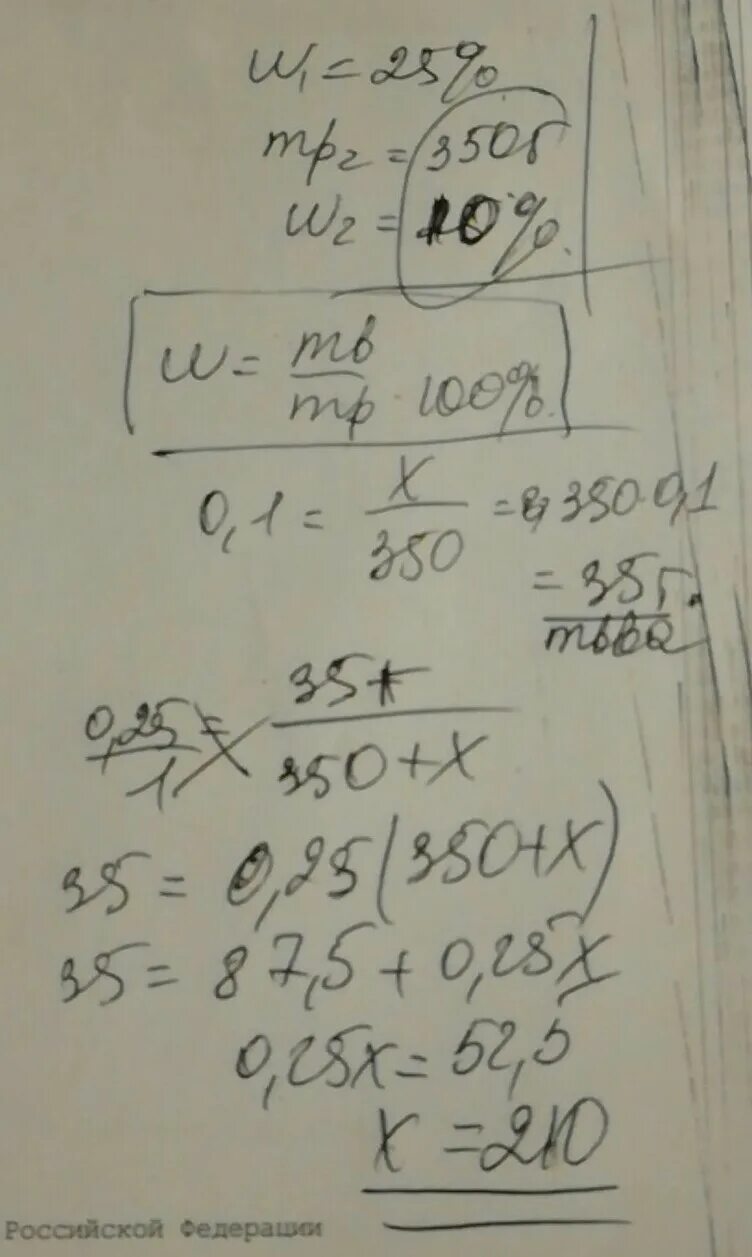 W₁ = 25%
mp₂ = 350г
W₂ = 10%.
W = mв/mp 100%.
0,1 = x/350 = 350·0,1
= 35г.
0,25/1 = 35+/350+x
35 = 0,25(350+x)
35 = 87,5 + 0,25x
0,25x = 52,5
x = 210
Российской Федерации